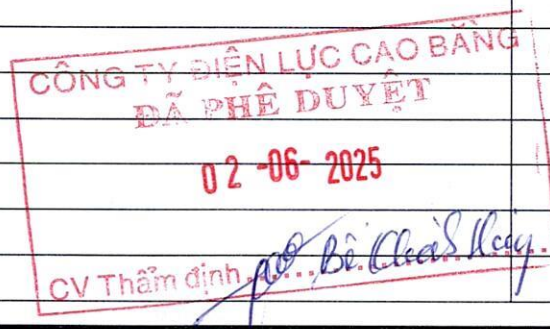 CÔNG TY ĐIỆN LỰC CAO BẰNG
ĐÃ PHÊ DUYỆT
02 -06- 2025
CV Thẩm định ........ Bế